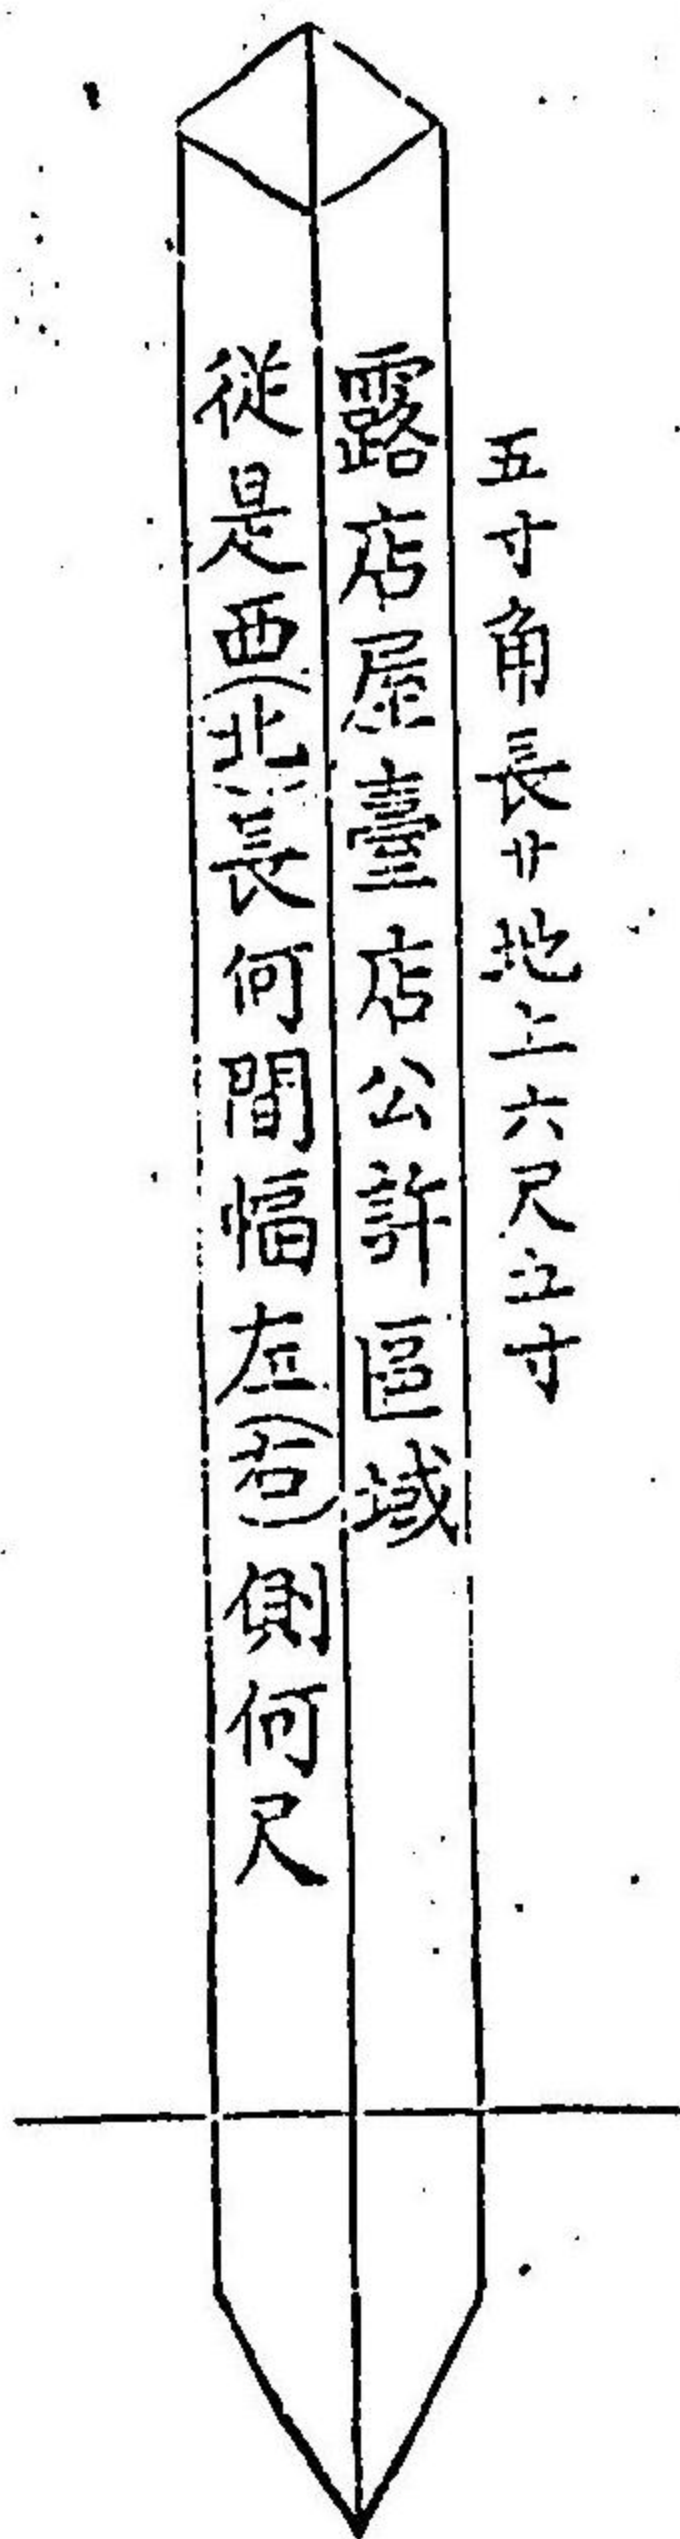 五寸角長サ地上六尺五寸
露店屋臺店公許區域
従是西(北)長何間幅左(右)側何尺